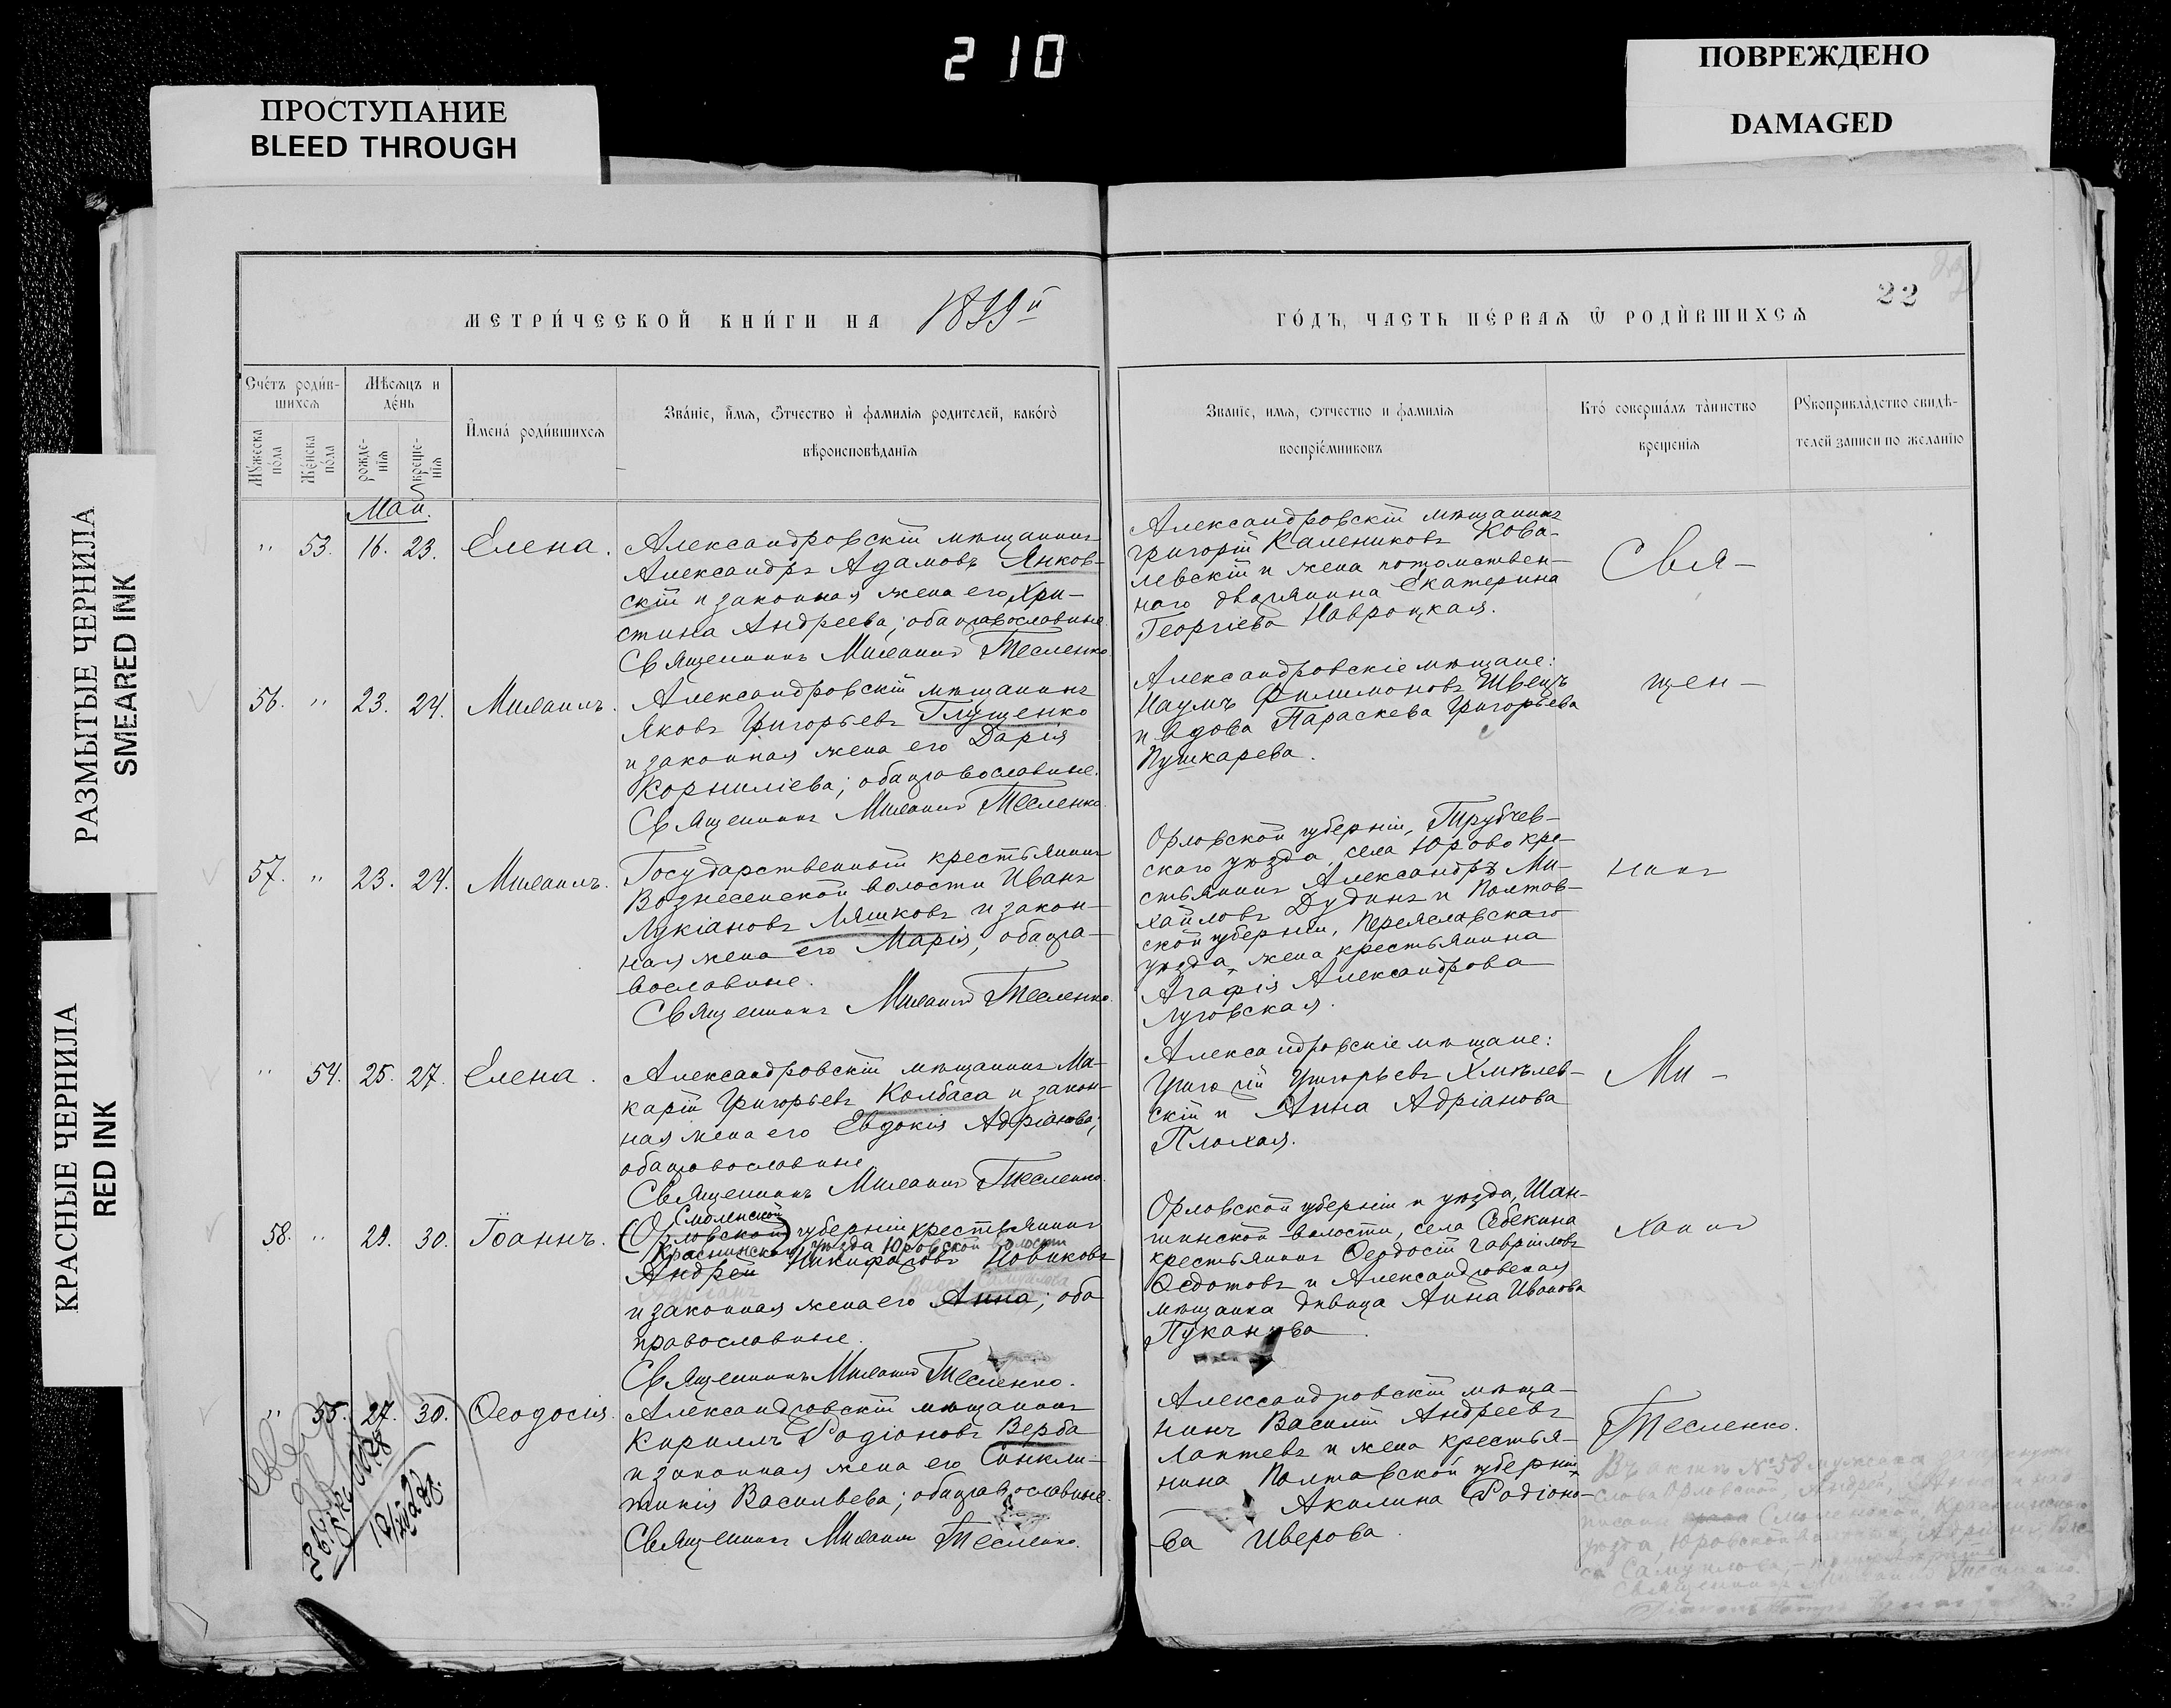 210
ПРОСТУПАНИЕ
BLEED THROUGH
ПОВРЕЖДЕНО
DAMAGED
РАЗМЫТЫЕ ЧЕРНИЛА
SMEARED INK
КРАСНЫЕ ЧЕРНИЛА
RED INK
МЕТРИ́ЧЕСКОЙ КНИ́ГИ НА 1899й
ГО́ДЪ, ЧАСТЬ ПЕ́РВАЯ Ѿ РОДИ́ВШИХСЯ
22
Сче́тъ роди́в-
шихся
Мѣсяцъ и
де́нь
Му́жеска
по́ла
Же́нска
по́ла
рожде-
нія
креще-
нія
Имена́ роди́вшихся
Зва́ніе, и́мя, ѻ́тчество и҆ фамилія родителей, како́го
вѣроисповѣданія
Званіе, имя, ѻтчество и фамилія
воспріе́мниковъ
Кто́ соверша́лъ та́инство
крещенія
Рукоприкла́дство свидѣ-
телей записи по желанію
Май.
" 53. 16. 23. Елена.
Александровскій мѣщанинъ
Александръ Адамовъ Янков-
скій и законная жена его Хри-
стина Андреева; оба православные.
Священникъ Михаилъ Тесленко
Александровскій мѣщанинъ
Григорій Калениковъ Кова-
левскій и жена потомствен-
наго дворянина Екатерина
Георгіева Навроцкая.
Свя-
56. " 23. 24. Михаилъ.
Александровскій мѣщанинъ
Яковъ Григорьевъ Глущенко
и законная жена его Дарія
Корниліева; оба православные.
Священникъ Михаилъ Тесленко.
Александровскіе мѣщане:
Наумъ Филимоновъ Швецъ
и вдова Параскева Григорьева
Пушкарева.
щен-
57. " 23. 24. Михаилъ.
Государственный крестьянинъ
Вознесенской волости Иванъ
Лукіановъ Ляшковъ и закон-
ная жена его Марія; оба пра-
вославные.
Священникъ Михаилъ Тесленко.
Орловской губерніи, Трубчев-
скаго уѣзда, села Юрово кре-
стьянинъ Александръ Ми-
хайловъ Дудинъ и Полтав-
ской губерніи, Переяславскаго
уѣзда, жена крестьянина
Агафія Александрова
Луговская.
никъ
" 54. 25. 27. Елена.
Александровскій мѣщанинъ Ма-
карій Григорьевъ Колбаса и закон-
ная жена его Евдокія Адріанова;
оба православные
Священникъ Михаилъ Тесленко.
Александровскіе мѣщане:
Григорій Григорьевъ Хмѣлев-
скій и Анна Адріанова
Плохая.
Ми-
58. " 29. 30. Іоаннъ.
Смоленской
(Орловской) губерніи крестьянинъ
Краснинскаго уѣзда Юровской волости
Андрей Никифоровъ Новиковъ
Адріанъ
и законная жена его Анна; оба
православные.
Священникъ Михаилъ Тесленко.
Орловской губерніи и уѣзда, Шан-
шинской волости, села Себекина
крестьянинъ Ѳеодосій Гавріиловъ
Ѳедотовъ и Александровская
мѣщанка дѣвица Анна Иванова
Пуканова
хаилъ
" 55. 27. 30. Ѳеодосія.
Александровскій мѣщанинъ
Кириллъ Родіоновъ Верба
и законная жена его Синкли-
тикія Васильева; оба православные.
Священникъ Михаилъ Тесленко.
Александровскій мѣща-
нинъ Василій Андреевъ
Лаптевъ и жена крестья-
нина Полтавской губерніи
Акилина Родіоно-
ва Иверова.
Тесленко.
Въ актѣ № 58 мужска
слова Орловской, Андрей,
Смоленской, Краснинскаго
уѣзда, Юровской волости, Адріанъ,
Священникъ Михаилъ Тесленко.